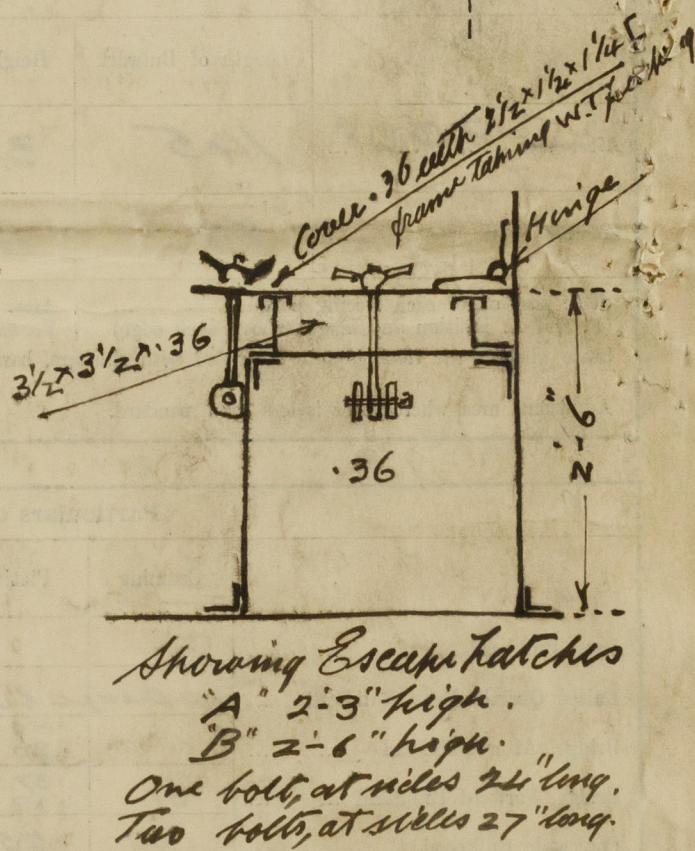 Cover .36 with 2½" x 1½" x 1¼ [
frame taking W.T.
Hinge
3½" x 3½" x .36
2'-6"
.36
Showing Escape hatches
"A" 2'-3" high.
"B" 2'-6" high.
One bolt, at sides 24" long.
Two bolts, at sides 27" long.